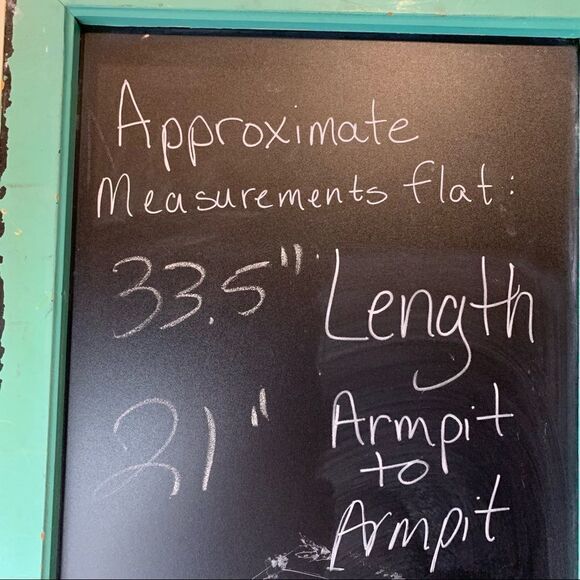 Approximate
Measurements flat:
33.5" Length
21" Armpit
to
Armpit